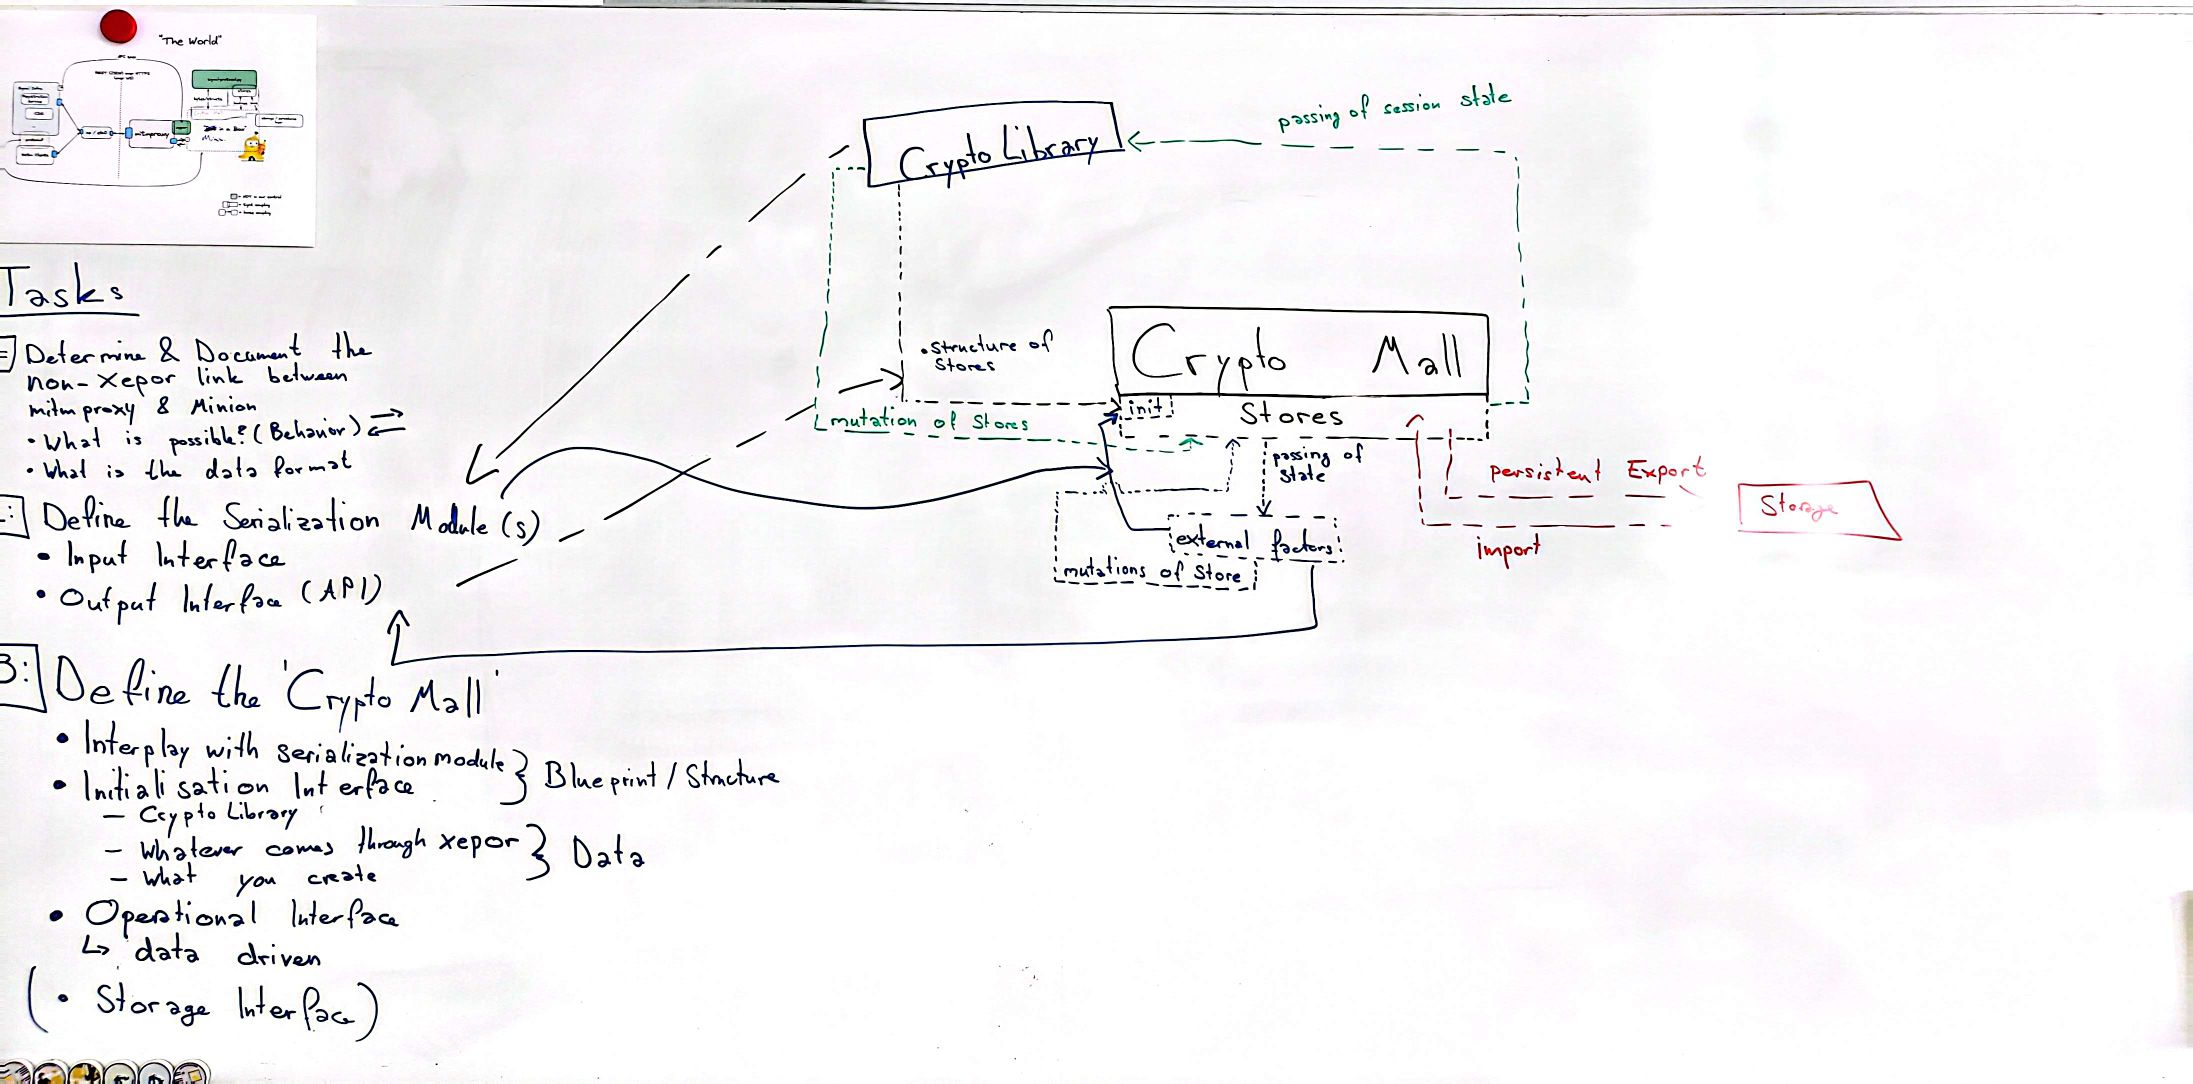 "The World"
mitmproxy
Tasks
Determine & Document the
non-Xepor link between
mitmproxy & Minion
• What is possible? (Behavior)
• What is the data format
Define the Serialization Module(s)
• Input Interface
• Output Interface (API)
3: Define the 'Crypto Mall'
• Interplay with serialization module
• Initialisation Interface
} Blueprint / Structure
– Crypto Library
– Whatever comes through xepor
– What you create
} Data
• Operational Interface
↳ data driven
(• Storage Interface)
Crypto Library
passing of session state
• Structure of
Stores
mutation of Stores
Crypto Mall
init
Stores
passing of
State
external factors
mutations of Store
persistent Export
import
Storage